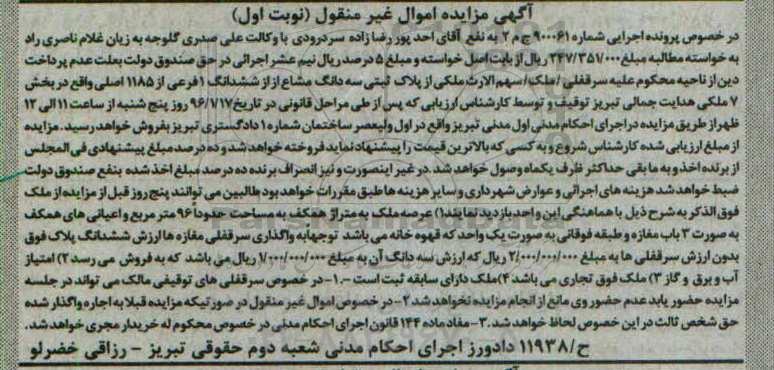 آگهی مزایده اموال غیر منقول (نوبت اول)
در خصوص پرونده اجرایی شماره ۹۰۰۰۶۱ ج م ۲ به نفع آقای احد پور رضا زاده سردرودی با وکالت علی صدری گلوجه به زیان غلام ناصری راد
به خواسته مطالبه مبلغ ۲۴۷/۳۵۱/۰۰۰ ریال از بابت اصل خواسته و مبلغ ۵ درصد ریال نیم عشر اجرائی در حق صندوق دولت بعلت عدم پرداخت
دین از ناحیه محکوم علیه سرقفلی /ملک/ سهم الارث ملکی از پلاک ثبتی سه دانگ مشاع از از ششدانگ ۱ فرعی از ۱۱۸۵ اصلی واقع در بخش
۷ ملکی هدایت جمالی تبریز توقیف و توسط کارشناس ارزیابی که پس از طی مراحل قانونی در تاریخ ۹۶/۷/۱۷ روز پنج شنبه از ساعت ۱۱ الی ۱۲
ظهر از طریق مزایده در اجرای احکام مدنی اول مدنی تبریز واقع در اول ولیعصر ساختمان شماره ۱ دادگستری تبریز بفروش خواهد رسید. مزایده
از مبلغ ارزیابی شده کارشناس شروع و به کسی که بالاترین قیمت را پیشنهاد نماید فروخته خواهد شد و ده درصد مبلغ پیشنهادی فی المجلس
از برنده اخذ و به ما بقی حداکثر ظرف یکماه وصول خواهد شد. در غیر اینصورت و نیز انصراف برنده ده درصد مبلغ اخذ شده بنفع صندوق دولت
ضبط خواهد شد هزینه های اجرائی و عوارض شهرداری و سایر هزینه ها طبق مقررات خواهد بود طالبین می توانند پنج روز قبل از مزایده از ملک
فوق الذکر به شرح ذیل با هماهنگی این واحد بازدید نمایند ۱) عرصه ملک به متراژ همکف به مساحت حدوداً ۹۶ متر مربع و اعیانی های همکف
به صورت ۳ باب مغازه و طبقه فوقانی به صورت یک واحد که قهوه خانه می باشد توجهابه واگذاری سرقفلی مغازه ها ارزش ششدانگ پلاک فوق
بدون ارزش سرقفلی ها به مبلغ ۲/۰۰۰/۰۰۰/۰۰۰ ریال که ارزش سه دانگ آن به مبلغ ۱/۰۰۰/۰۰۰/۰۰۰ ریال می باشد که به فروش می رسد ۲) امتیاز
آب و برق و گاز ۳) ملک فوق تجاری می باشد ۴) ملک دارای سابقه ثبت است -.۱- در خصوص سرقفلی های توقیفی مالک می تواند در جلسه
مزایده حضور یابد عدم حضور وی مانع از انجام مزایده نخواهد شد ۲- در خصوص اموال غیر منقول در صورتیکه مزایده قبلا به اجاره واگذار شده
حق شخص ثالث در این خصوص لحاظ خواهد شد. ۳- مفاد ماده ۱۴۴ قانون اجرای احکام مدنی در خصوص محکوم له خریدار مجری خواهد شد.
ح/۱۱۹۳۸ دادورز اجرای احکام مدنی شعبه دوم حقوقی تبریز - رزاقی خضرلو